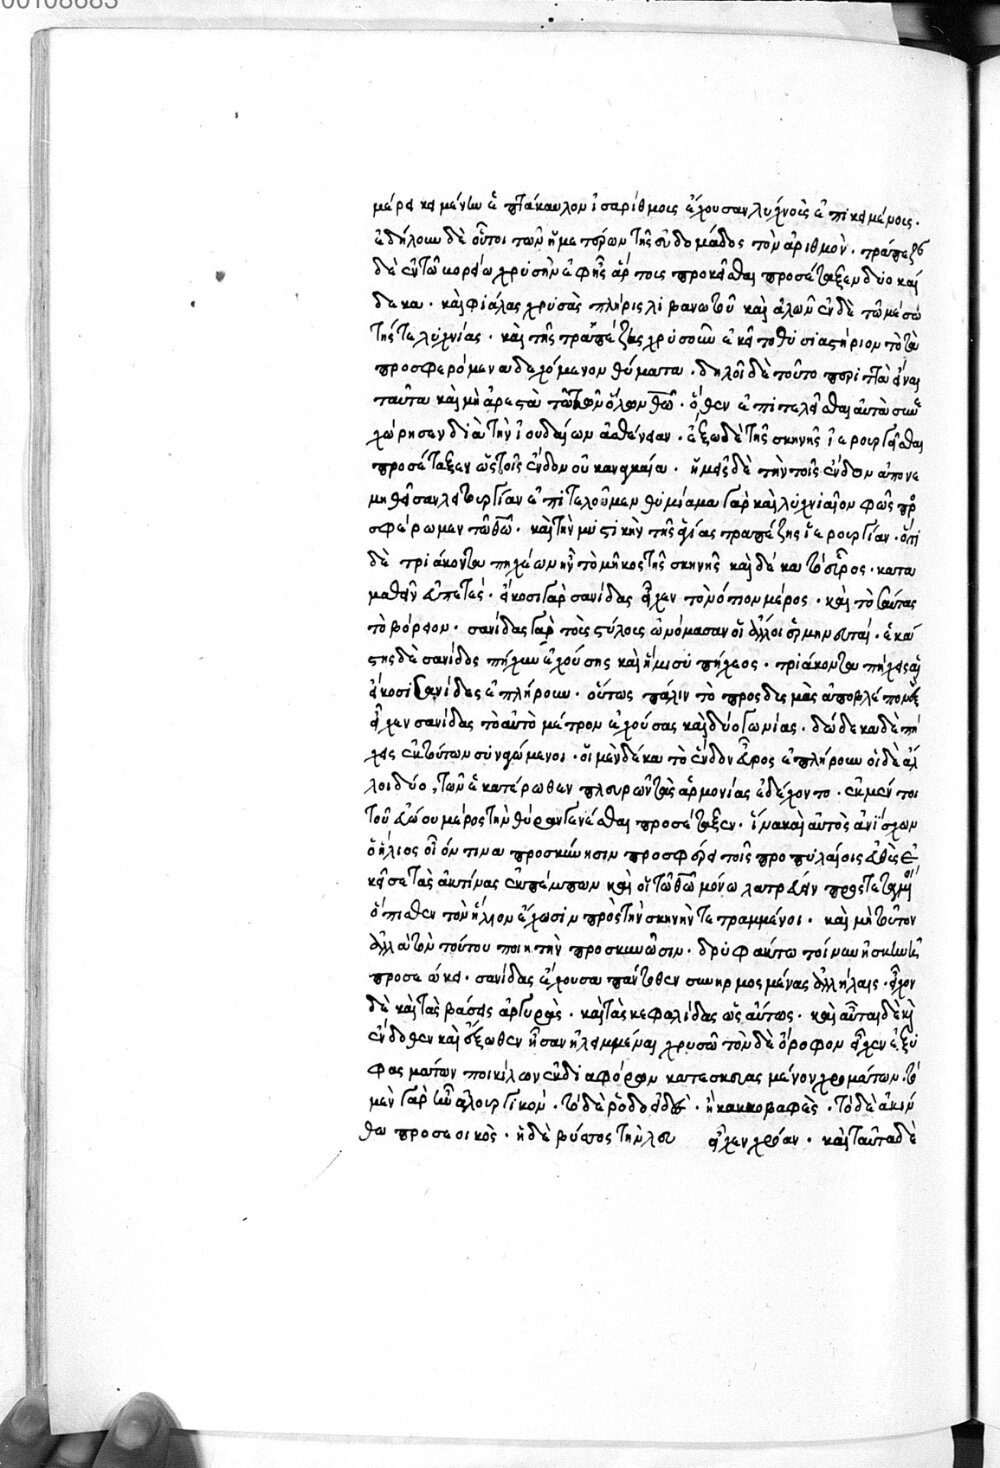 00108683
μέρει κειμένην ἑπτάκαυλον ἰσαρίθμοις ἔχουσαν λύχνοις ἐπικειμένοις.
ἐδήλουν δὲ οὗτοι τῶν ἡμετέρων τῆς ἑβδομάδος τὸν ἀριθμὸν. τράπεζαν
δὲ ἐν τῷ βορείῳ χρυσῆν ἐφ' ἧς ἄρτοις προκεῖσθαι προσέταξεν δύο καὶ
δεκα. καὶ φιάλας χρυσᾶς πλήρις λιβανωτοῦ καὶ ἁλῶν ἐν δὲ τῷ μέσῳ
τῆς τε λυχνίας. καὶ τῆς τραπέζης χρυσοῦν ἔκειτο θυσιαστήριον τὸ τὰ
προσφερόμενα δεχόμενον θύματα. δηλοῖ δὲ τοῦτο περιττὰ εἶναι
ταῦτα καὶ μὴ ἀρεστὰ τῷ τῶν ὅλων θῶ. ὅθεν ἐπιτελεῖσθαι αὐτὰ συνε
χώρησεν διὰ τὴν ἰουδαίων ἀσθένειαν. ἔξω δὲ τῆς σκηνῆς ἱερουργεῖσθαι
προσέταξεν ὡς τοῖς ἔνδον οὐκ ἀναγκαίαν. ἡμεῖς δὲ τὴν τοῖς ἔνδον ἀπονε
μηθεῖσαν λειτουργίαν ἐπιτελοῦμεν θυμίαμα γὰρ καὶ λυχνιαῖον φῶς προ
σφέρωμεν τῷ θῶ. καὶ τὴν μυστικὴν τῆς ἁγίας τραπέζης ἱερουργίαν. ὅτι
δὲ τριάκοντα πηχέων ἦν τὸ μῆκος τῆς σκηνῆς καὶ δέκα τὸ εὖρος. κατα
μαθεῖν εὐπετές. εἴκοσι γὰρ σανίδας εἶχεν τὸ νότιον μέρος. καὶ τοσαύτας
τὸ βόρειον. σανίδας γὰρ τοὺς στύλους ὠνόμασαν οἱ ἄλλοι ἑρμηνευταί. ἑκά
στης δὲ σανίδος πῆχυν ἐχούσης καὶ ἥμισυ πήχεος. τριάκοντα πήχεις αἱ
εἴκοσι σανίδες ἐπλήρουν. οὕτως πάλιν τὸ προς δυσμὰς ἀποβλέπον μέρος
εἶχεν σανίδας τὸ αὐτὸ μέτρον ἐχούσας καὶ δύο γωνίας. δώδεκα δὲ πή
χεις ἐκ τούτων συνηγμένοι. οἱ μὲν δέκα τὸ ἔνδον εὖρος ἐπλήρουν οἱ δὲ ἄλ
λοι δύο, τῶν ἑκατέρωθεν πλευρῶν τὰς ἁρμονίας ἐδέχοντο. ἐκ μέν τοι
τοῦ ἑῴου μέρος τὴν θύραν γενέσθαι προσέταξεν. ἵνα καὶ αὐτὸς ἀνίσχων
ὁ ἥλιος οἷόν τινα προσκύνησιν προσφέρει τοῖς προπυλαίοις εὐθὺς ἐ
κεῖσε τὰς ἀκτίνας ἐκπέμπων καὶ οἱ τῷ θῶ μόνω λατρεύειν προστεταγμένοι
ὄπισθεν τὸν ἥλιον ἔχωσιν πρὸς τὴν σκηνὴν τετραμμένοι. καὶ μὴ τοῦτον
ἀλλὰ τὸν τούτου ποιητὴν προσκυνῶσιν. δρυφάκτω τοίνυν ἡ σκηνὴ
προσεώκει. σανίδας ἔχουσα πάντοθεν συνηρμοσμένας ἀλλήλαις. εἶχον
δὲ καὶ τὰς βάσεις ἀργυρᾶς. καὶ τὰς κεφαλίδας ὡς αὕτως. καὶ αὗται δὲ καὶ
ἔνδοθεν καὶ ἔξωθεν ἦσαν ἠλειμμέναι χρυσῶ τὸν δὲ ὄροφον εἶχεν ἐξ ὑ
φασμάτων ποικίλων ἐκ διαφόρων κατεσκευασμένον χρωμάτων. τὸ
μὲν γὰρ ἦν ἁλουργικόν. τὸ δὲ ῥοδοειδὲς. ἢ κοκκοβαφὲς. τὸ δὲ ὑακίν
θω προσεοικὸς. ἡ δὲ βύσσος τὴν λευ εἶχεν χρόαν. καὶ ταῦτα δὲ